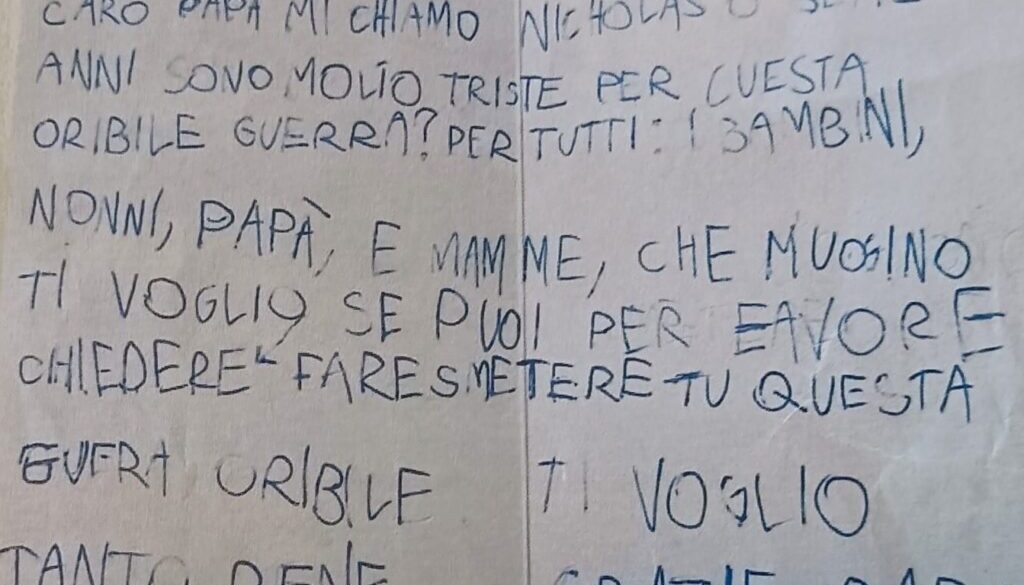 CARO PAPA MI CHIAMO NICHOLAS O
ANNI SONO MOLTO TRISTE PER CUESTA
ORIBILE GUERRA? PER TUTTI: I BAMBINI,
NONNI, PAPÀ, E MAMME, CHE MUOINO
TI VOGLIO SE PUOI PER FAVORE
CHIEDERE FARE SMETERE TU QUESTA
GUERA ORIBILE TI VOGLIO
TANTO BENE